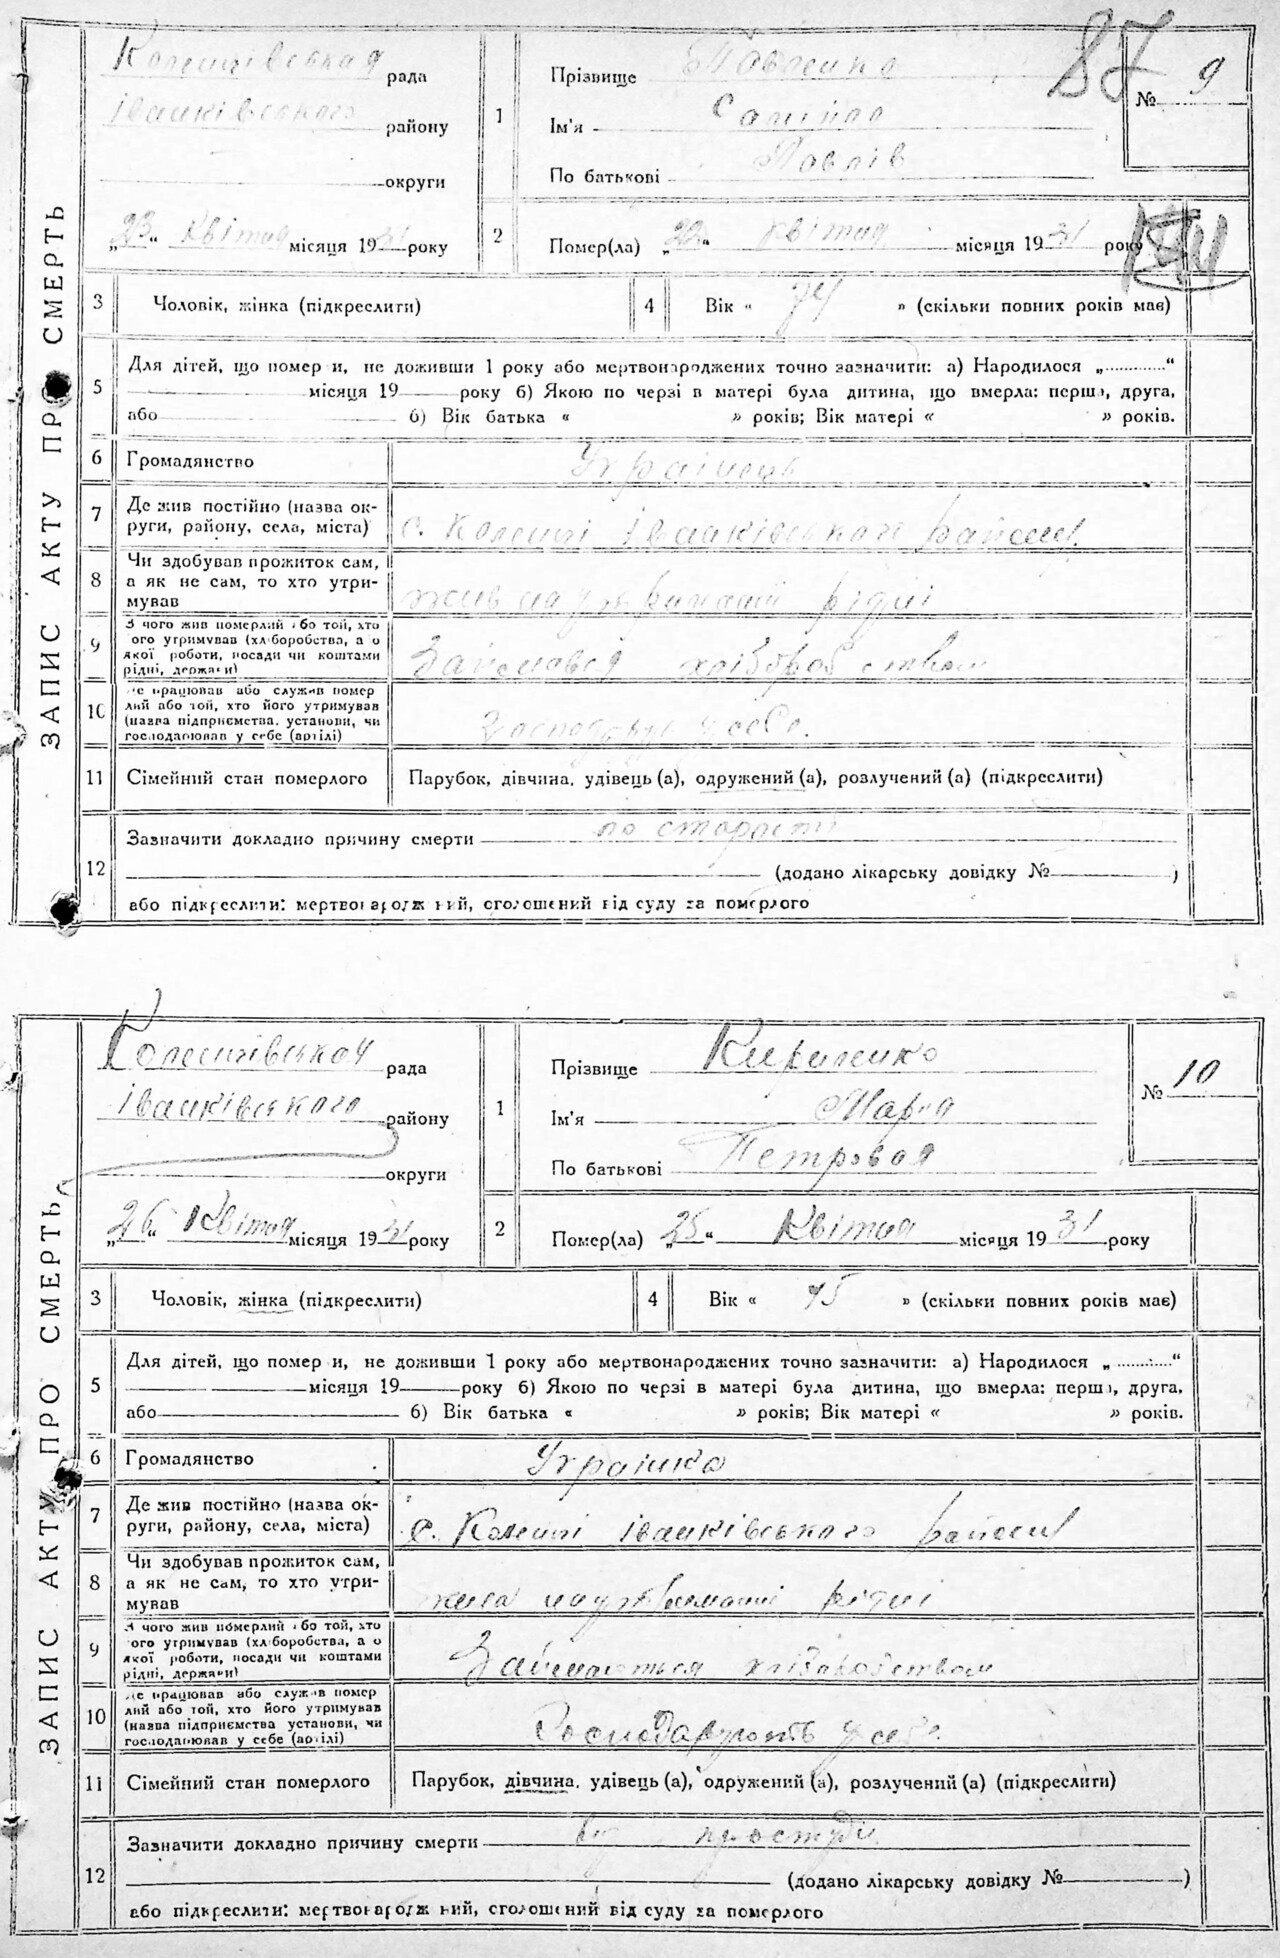 ЗАПИС АКТУ ПРО СМЕРТЬ
87
№ 9
рада
Іванківського району
округи
„23“ Квітня місяця 1931 року
1
Прізвище
Ім'я
По батькові Павлів
2
Помер(ла) „22“ Квітня місяця 1931 року
3
Чоловік, жінка (підкреслити)
4
Вік « 74 » (скільки повних років має)
5
Для дітей, що помер и, не доживши 1 року або мертвонароджених точно зазначити: а) Народилося „ “
місяця 19 року б) Якою по черзі в матері була дитина, що вмерла: перша, друга,
або б) Вік батька « » років; Вік матері « » років.
6
Громадянство Українець
7
Де жив постійно (назва ок-
руги, району, села, міста)
с. Іванківського району
8
Чи здобував прожиток сам,
а як не сам, то хто утри-
мував
жив на утриманні рідні
9
З чого жив померлий або той, хто
ого утримував (хліборобства, а о
якої роботи, посади чи коштами
рідні, держави)
Займався хліборобством
10
де працював або служив помер
лий або той, хто його утримував
(назва підприємства, установи, чи
господарював у себе (артілі)
у себе.
11
Сімейний стан померлого
Парубок, дівчина, удівець (а), одружений (а), розлучений (а) (підкреслити)
12
Зазначити докладно причину смерти по старости
(додано лікарську довідку № )
або підкреслити: мертвонароджений, оголошений від суду за померлого
ЗАПИС АКТУ ПРО СМЕРТЬ
№ 10
рада
Іванківського району
округи
„26“ Квітня місяця 1931 року
1
Прізвище Кириленко
Ім'я Марія
По батькові Петровая
2
Помер(ла) „25“ Квітня місяця 1931 року
3
Чоловік, жінка (підкреслити)
4
Вік « » (скільки повних років має)
5
Для дітей, що помер и, не доживши 1 року або мертвонароджених точно зазначити: а) Народилося „ “
місяця 19 року б) Якою по черзі в матері була дитина, що вмерла: перша, друга,
або б) Вік батька « » років; Вік матері « » років.
6
Громадянство Українка
7
Де жив постійно (назва ок-
руги, району, села, міста)
с. Іванківського району
8
Чи здобував прожиток сам,
а як не сам, то хто утри-
мував
жила на утриманні рідні
9
З чого жив померлий або той, хто
ого утримував (хліборобства, а о
якої роботи, посади чи коштами
рідні, держави)
Займаються
10
де працював або служив помер
лий або той, хто його утримував
(назва підприємства установи, чи
господарював у себе (артілі)
Господарують у себе.
11
Сімейний стан померлого
Парубок, дівчина, удівець (а), одружений (а), розлучений (а) (підкреслити)
12
Зазначити докладно причину смерти простуди
(додано лікарську довідку № )
або підкреслити: мертвонароджений, оголошений від суду за померлого